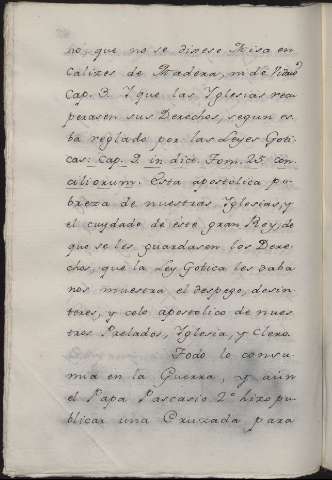 no, que no se dixese Misa en
Calizes de Madera, ni de Vidro
Cap. 3. Y que las Yglesias recu
perasen sus Derechos, segun es
ba reglado por las Leyes Goti
cas: Cap. 9. in dict. Tom. 25. con
ciliorum. Esta apostolica po
breza de nuestras Yglesias, y
el cuydado de este gran Rey, de
que se les guardasen los Dere
chos, que la Ley Gotica les daba
nos muestra el despego, desin
teres, y celo apostolico de nues
tros Prelados, Yglesia, y Clero.
Todo lo consu
mia en la Guerra, y aun
el Papa Pascasio 2º hizo pu
blicar una Cruzada para